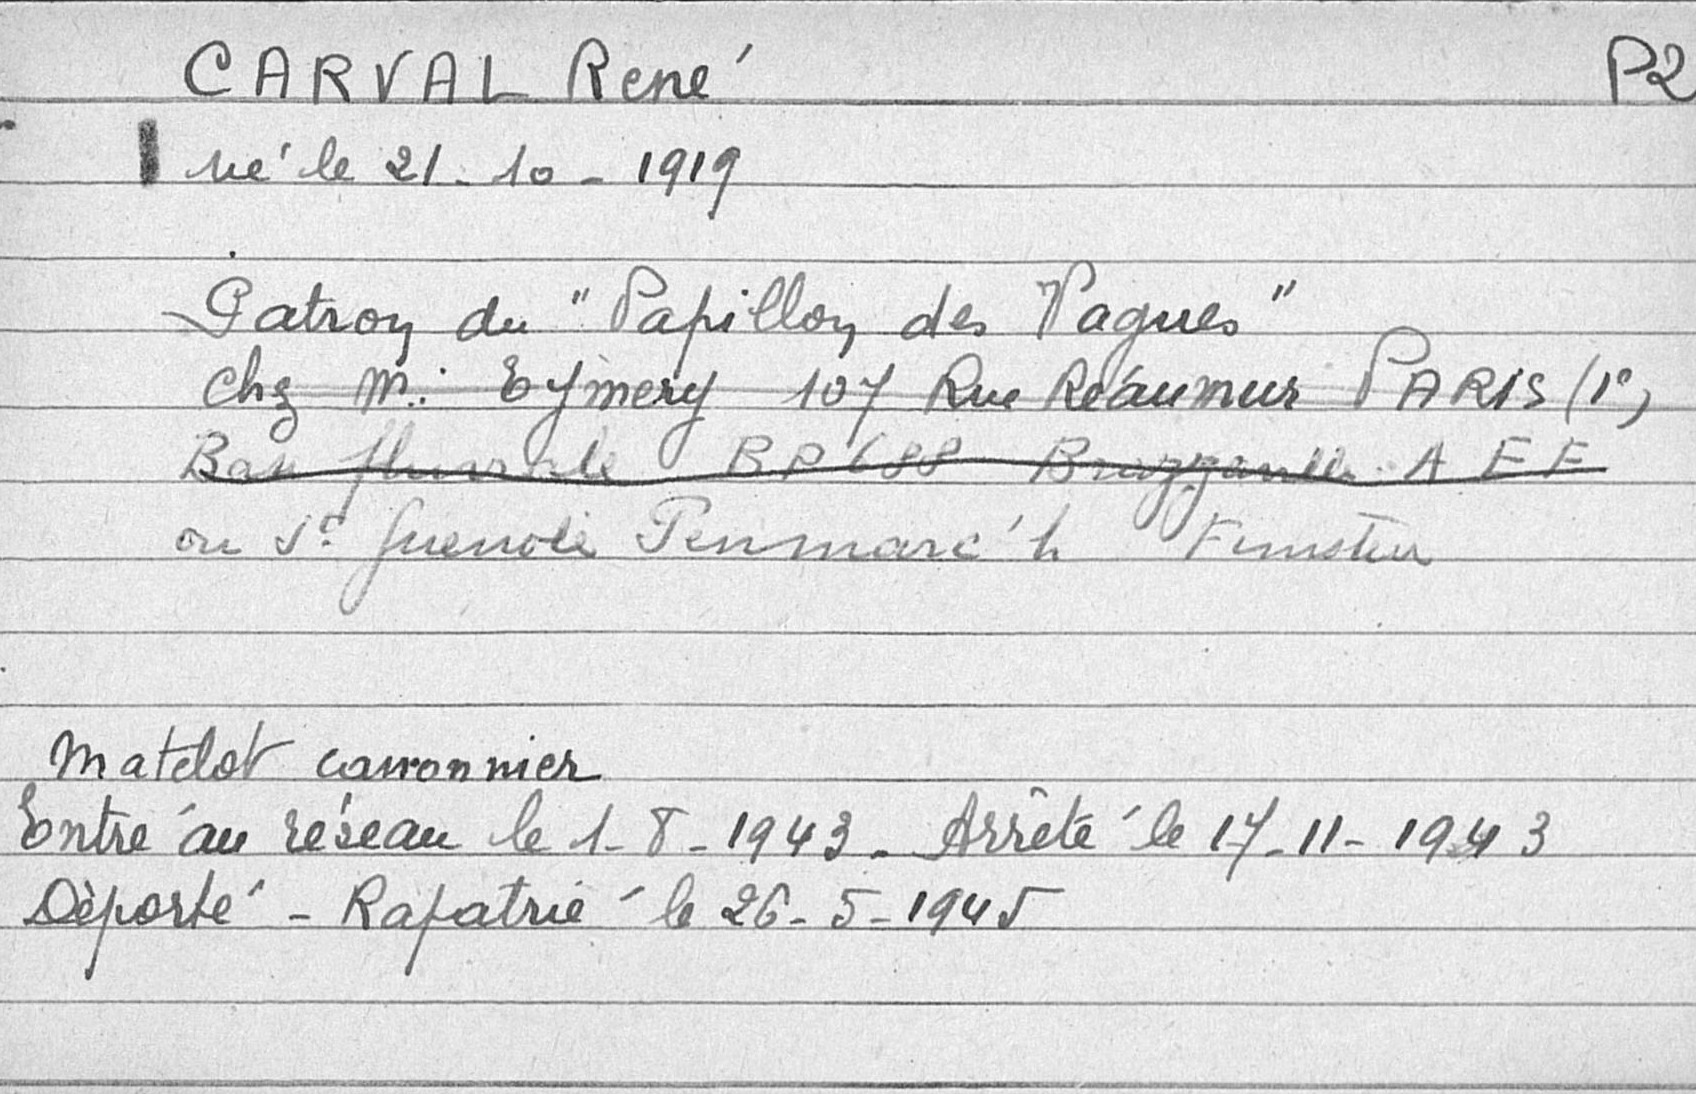 CARVAL René P2
né le 21-10-1919
Patron du "Papillon des Vagues"
chz M. Eymery 107 Rue Réaumur PARIS (1e)
Base fluviale BP 688 Brazzaville A E F
ou St Guenolé Penmarc'h Finistère
Matelot canonnier
Entré au réseau le 1-8-1943. Arrêté le 17-11-1943
Déporté - Rapatrié le 26-5-1945